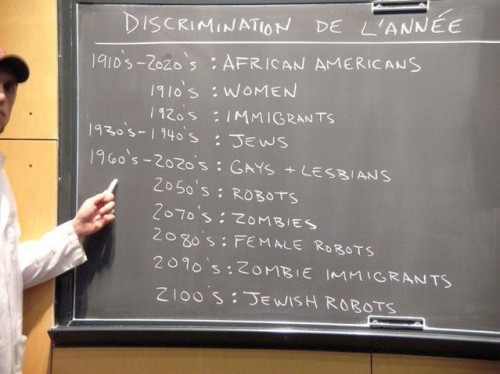 DISCRIMINATION DE L'ANNÉE
1910's-2020's : AFRICAN AMERICANS
1910's : WOMEN
1920's : IMMIGRANTS
1930's-1940's : JEWS
1960's-2020's : GAYS + LESBIANS
2050's : ROBOTS
2070's : ZOMBIES
2080's : FEMALE ROBOTS
2090's : ZOMBIE IMMIGRANTS
2100's : JEWISH ROBOTS